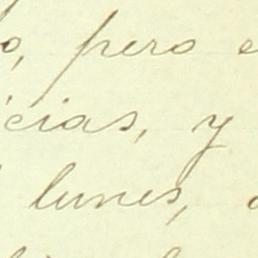 o, pero e
cias, y
lunes,